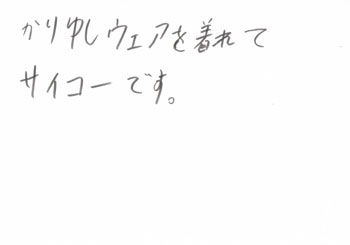 かりゆしウェアを着れて
サイコーです。